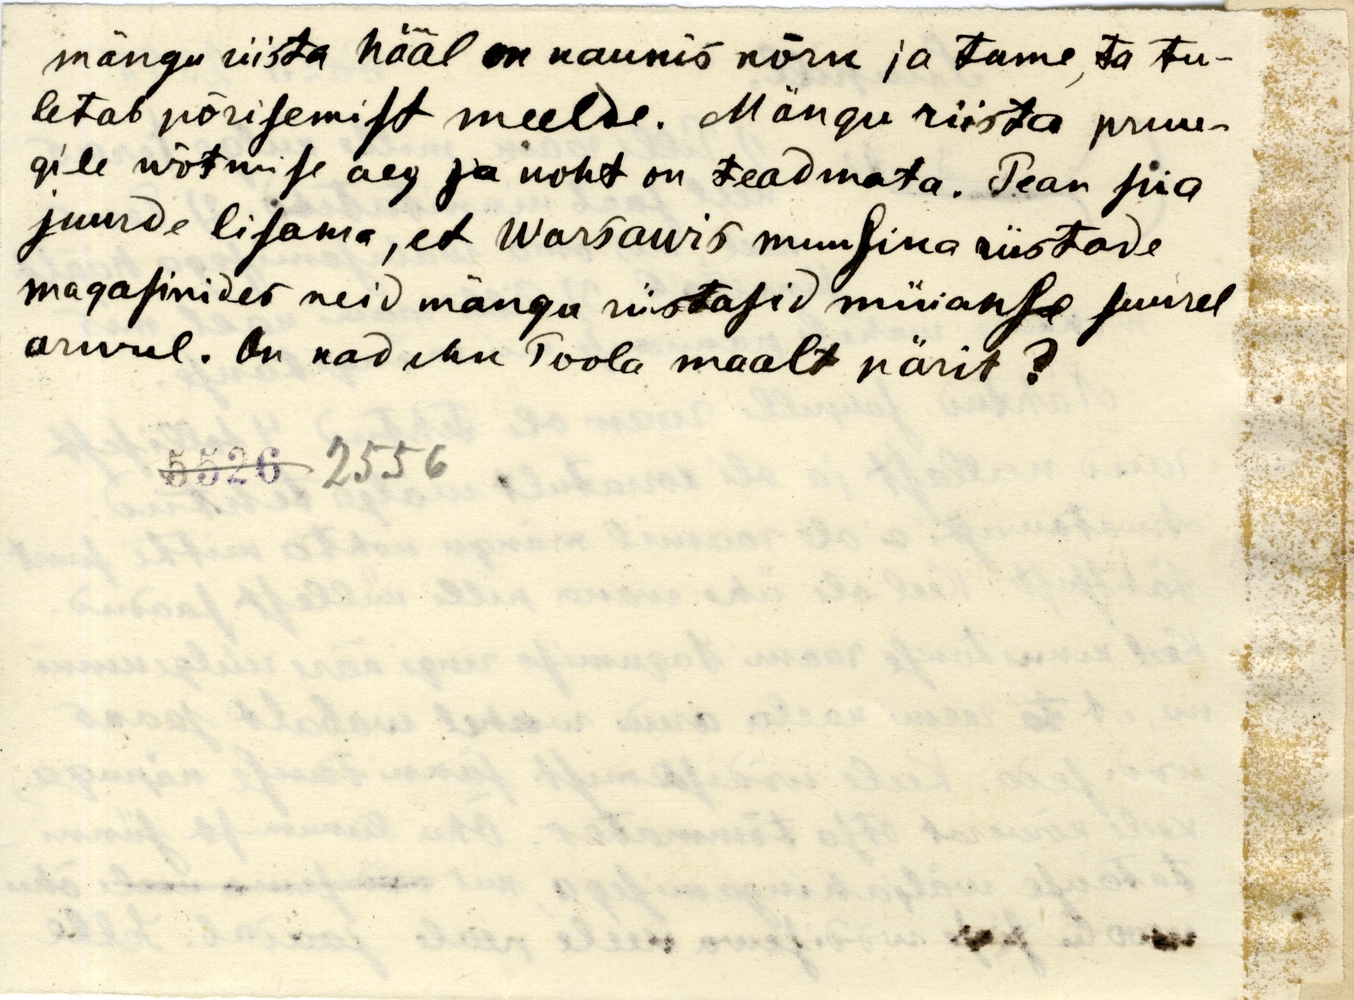 mängu riista hääl on kaunis nõrk ja tume, ta tu-
letab põrisemist meelde. Mängu riista pruu-
gile wõtmise aeg ja koht on teadmata. Pean siia
juurde lisama, et Warsawis muusika riistade
magasinides neid mängu riistasid müüakse suurel
arwul. On nad ehk Poola maalt pärit?
5526 2556